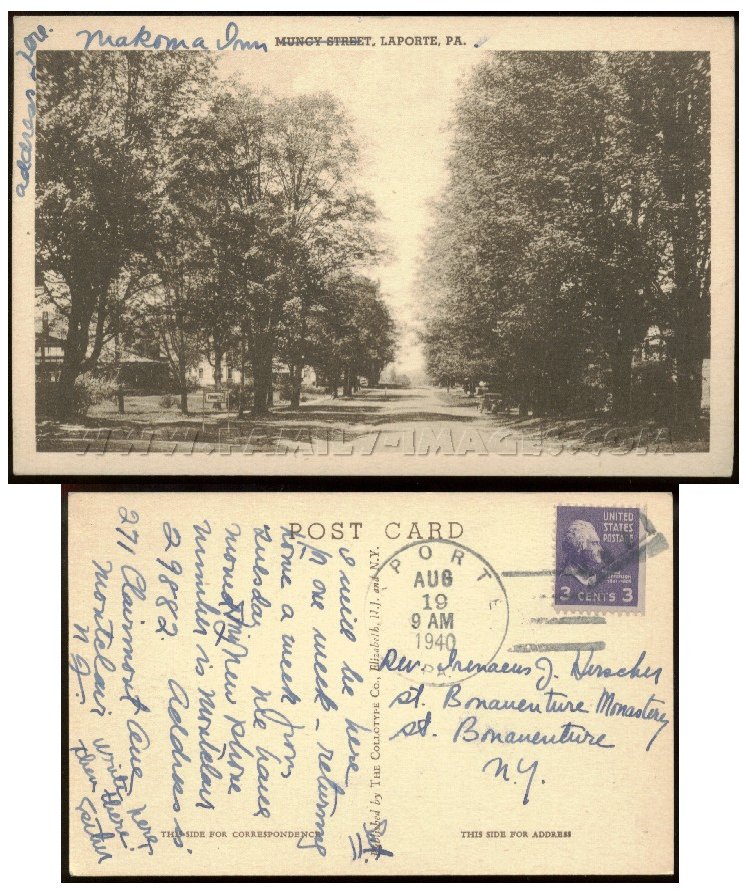 Makoma Inn MUNCY STREET, LAPORTE, PA.
address here.
WWW.FAMILY-IMAGES.COM
POST CARD
I will be here
h one week - returning
home a week from
Tuesday We have
moved My New phone
number is Montclair
29882. Address is.
271 Clairmont Ave
Montclair
N. J.
write there
then Father
Published by THE COLLOTYPE Co., Elizabeth, N.J. and N.Y.
THIS SIDE FOR CORRESPONDENCE
PORTE
AUG
19
9 AM
1940
PA.
UNITED
STATES
POSTAGE
3 CENTS 3
Rev. Irenaeus J. Herscher
St. Bonaventure Monastery
St. Bonaventure
N.Y.
THIS SIDE FOR ADDRESS